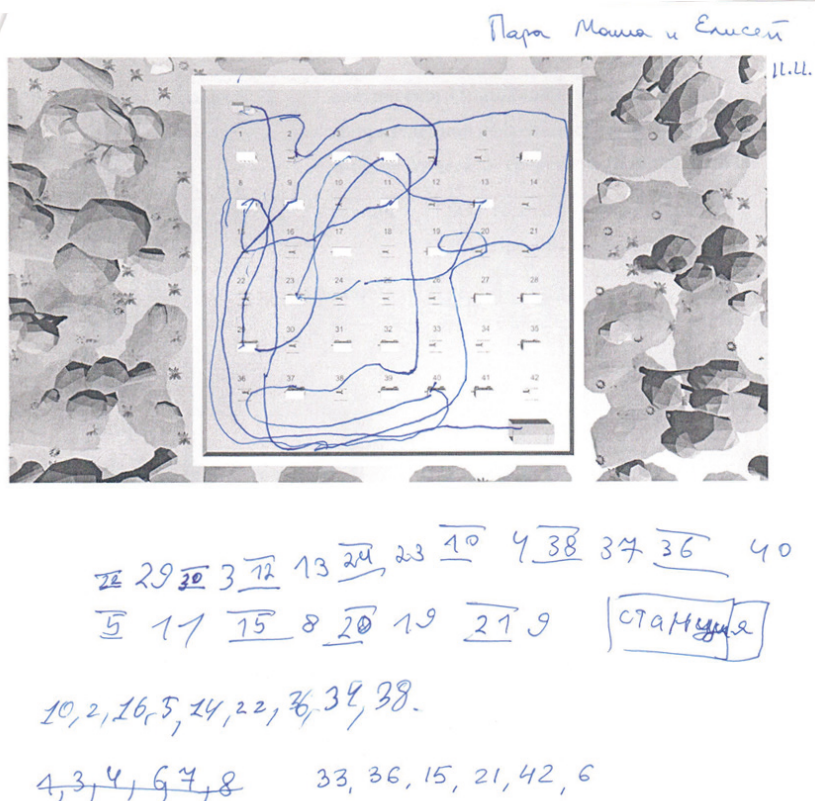 Пара Маша и Елисей
11.11.
1 2 3 4 6 7
8 9 10 11 12 13 14
15 16 17 18 19 20 21
22 23 24 25 26 27 28
29 30 31 32 33 34 35
36 37 38 39 40 41 42
29 30 3 12 13 24 23 10 4 38 37 36 40
5 11 15 8 20 19 21 9 станция
10, 2, 16, 5, 14, 22, 36, 34, 38.
1, 3, 4, 6, 7, 8 33, 36, 15, 21, 42, 6